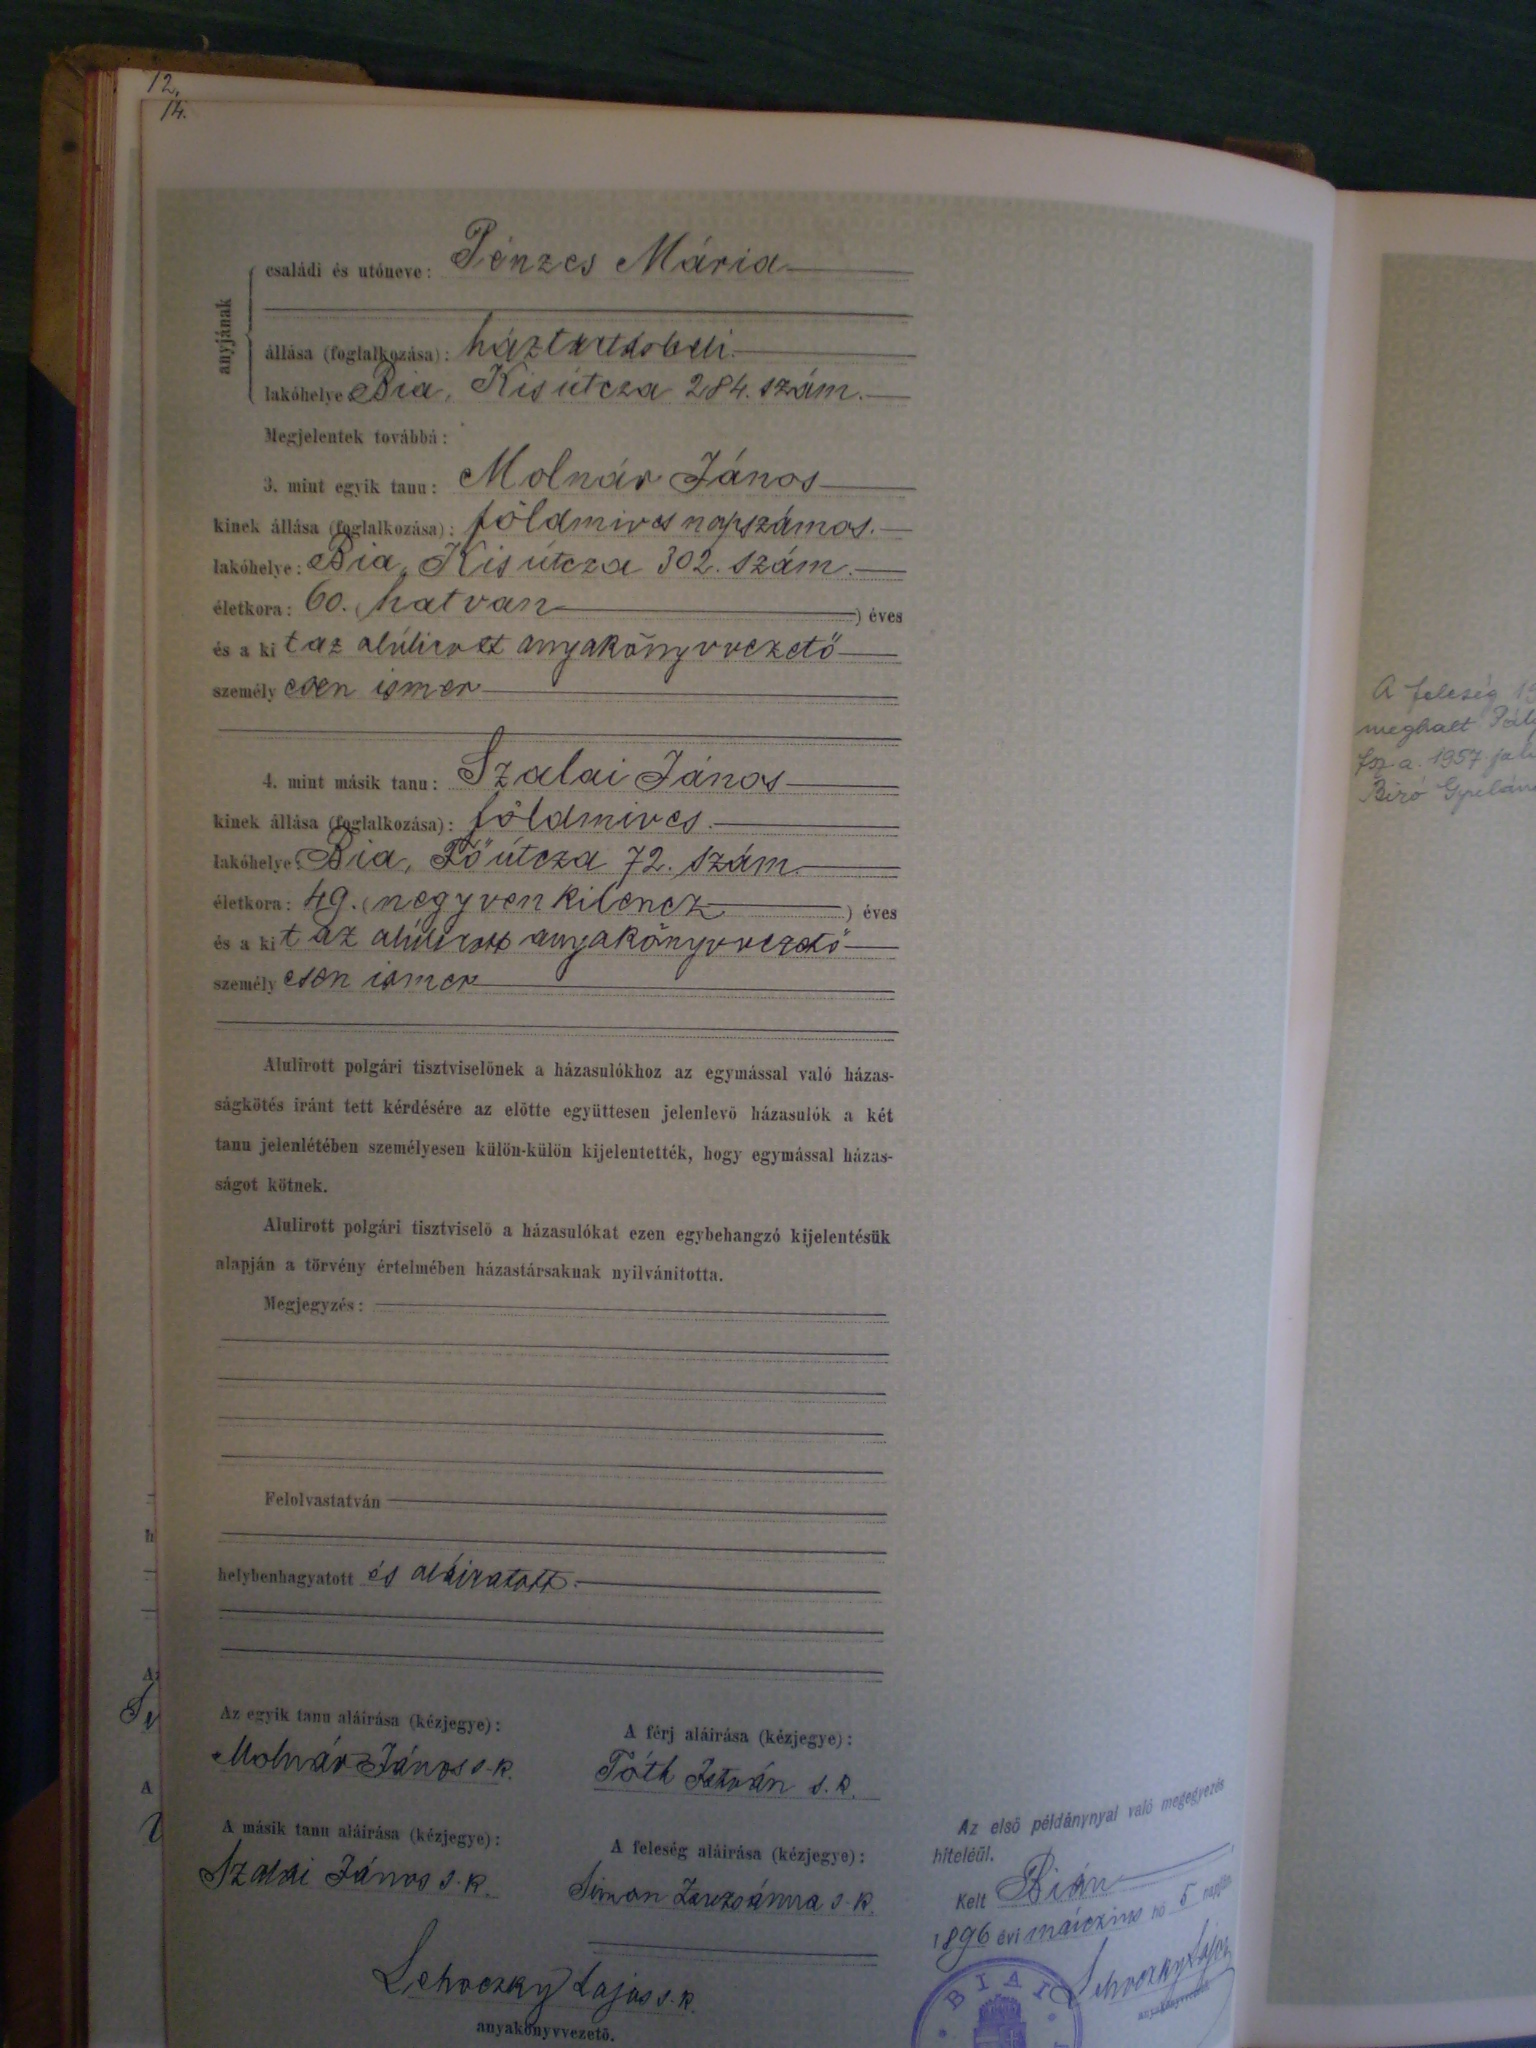 12.
14.
anyjának
családi és utóneve: Pénzes Mária
állása (foglalkozása): háztartásbeli.
lakóhelye Bia, Kisútcza 284. szám.
Megjelentek továbbá:
3. mint egyik tanu: Molnár János
kinek állása (foglalkozása): földmives napszámos.
lakóhelye: Bia, Kisútcza 302. szám.
életkora: 60. (hatvan ) éves
és a ki t az alúlirott anyakönyvvezető
személy esen ismer
4. mint másik tanu: Szalai János
kinek állása (foglalkozása): földmives.
lakóhelye: Bia, Főútcza 72. szám.
életkora: 49. (negyvenkilencz ) éves
és a ki t az alúlirott anyakönyvvezető
személy esen ismer
Alulirott polgári tisztviselőnek a házasulókhoz az egymással való házas-
ságkötés iránt tett kérdésére az előtte együttesen jelenlevő házasulók a két
tanu jelenlétében személyesen külön-külön kijelentették, hogy egymással házas-
ságot kötnek.
Alulirott polgári tisztviselő a házasulókat ezen egybehangzó kijelentésük
alapján a törvény értelmében házastársaknak nyilvánitotta.
Megjegyzés:
Felolvastatván
helybenhagyatott és aláiratott.
Az egyik tanu aláírása (kézjegye):
Molnár János s. k.
A férj aláírása (kézjegye):
Tóth István s. k.
A másik tanu aláírása (kézjegye):
Szalai János s. k.
A feleség aláírása (kézjegye):
Simon Zsuzsánna s. k.
Lehoczky Lajos s. k.
anyakönyvvezető.
Az első példánynyal való megegyezés
hiteléül.
Kelt Bián
1896 évi márczius hó 5 napján
Lehoczky Lajos
anyakönyvvezető
BIAI
A feleség 19
meghalt
1957
Biró